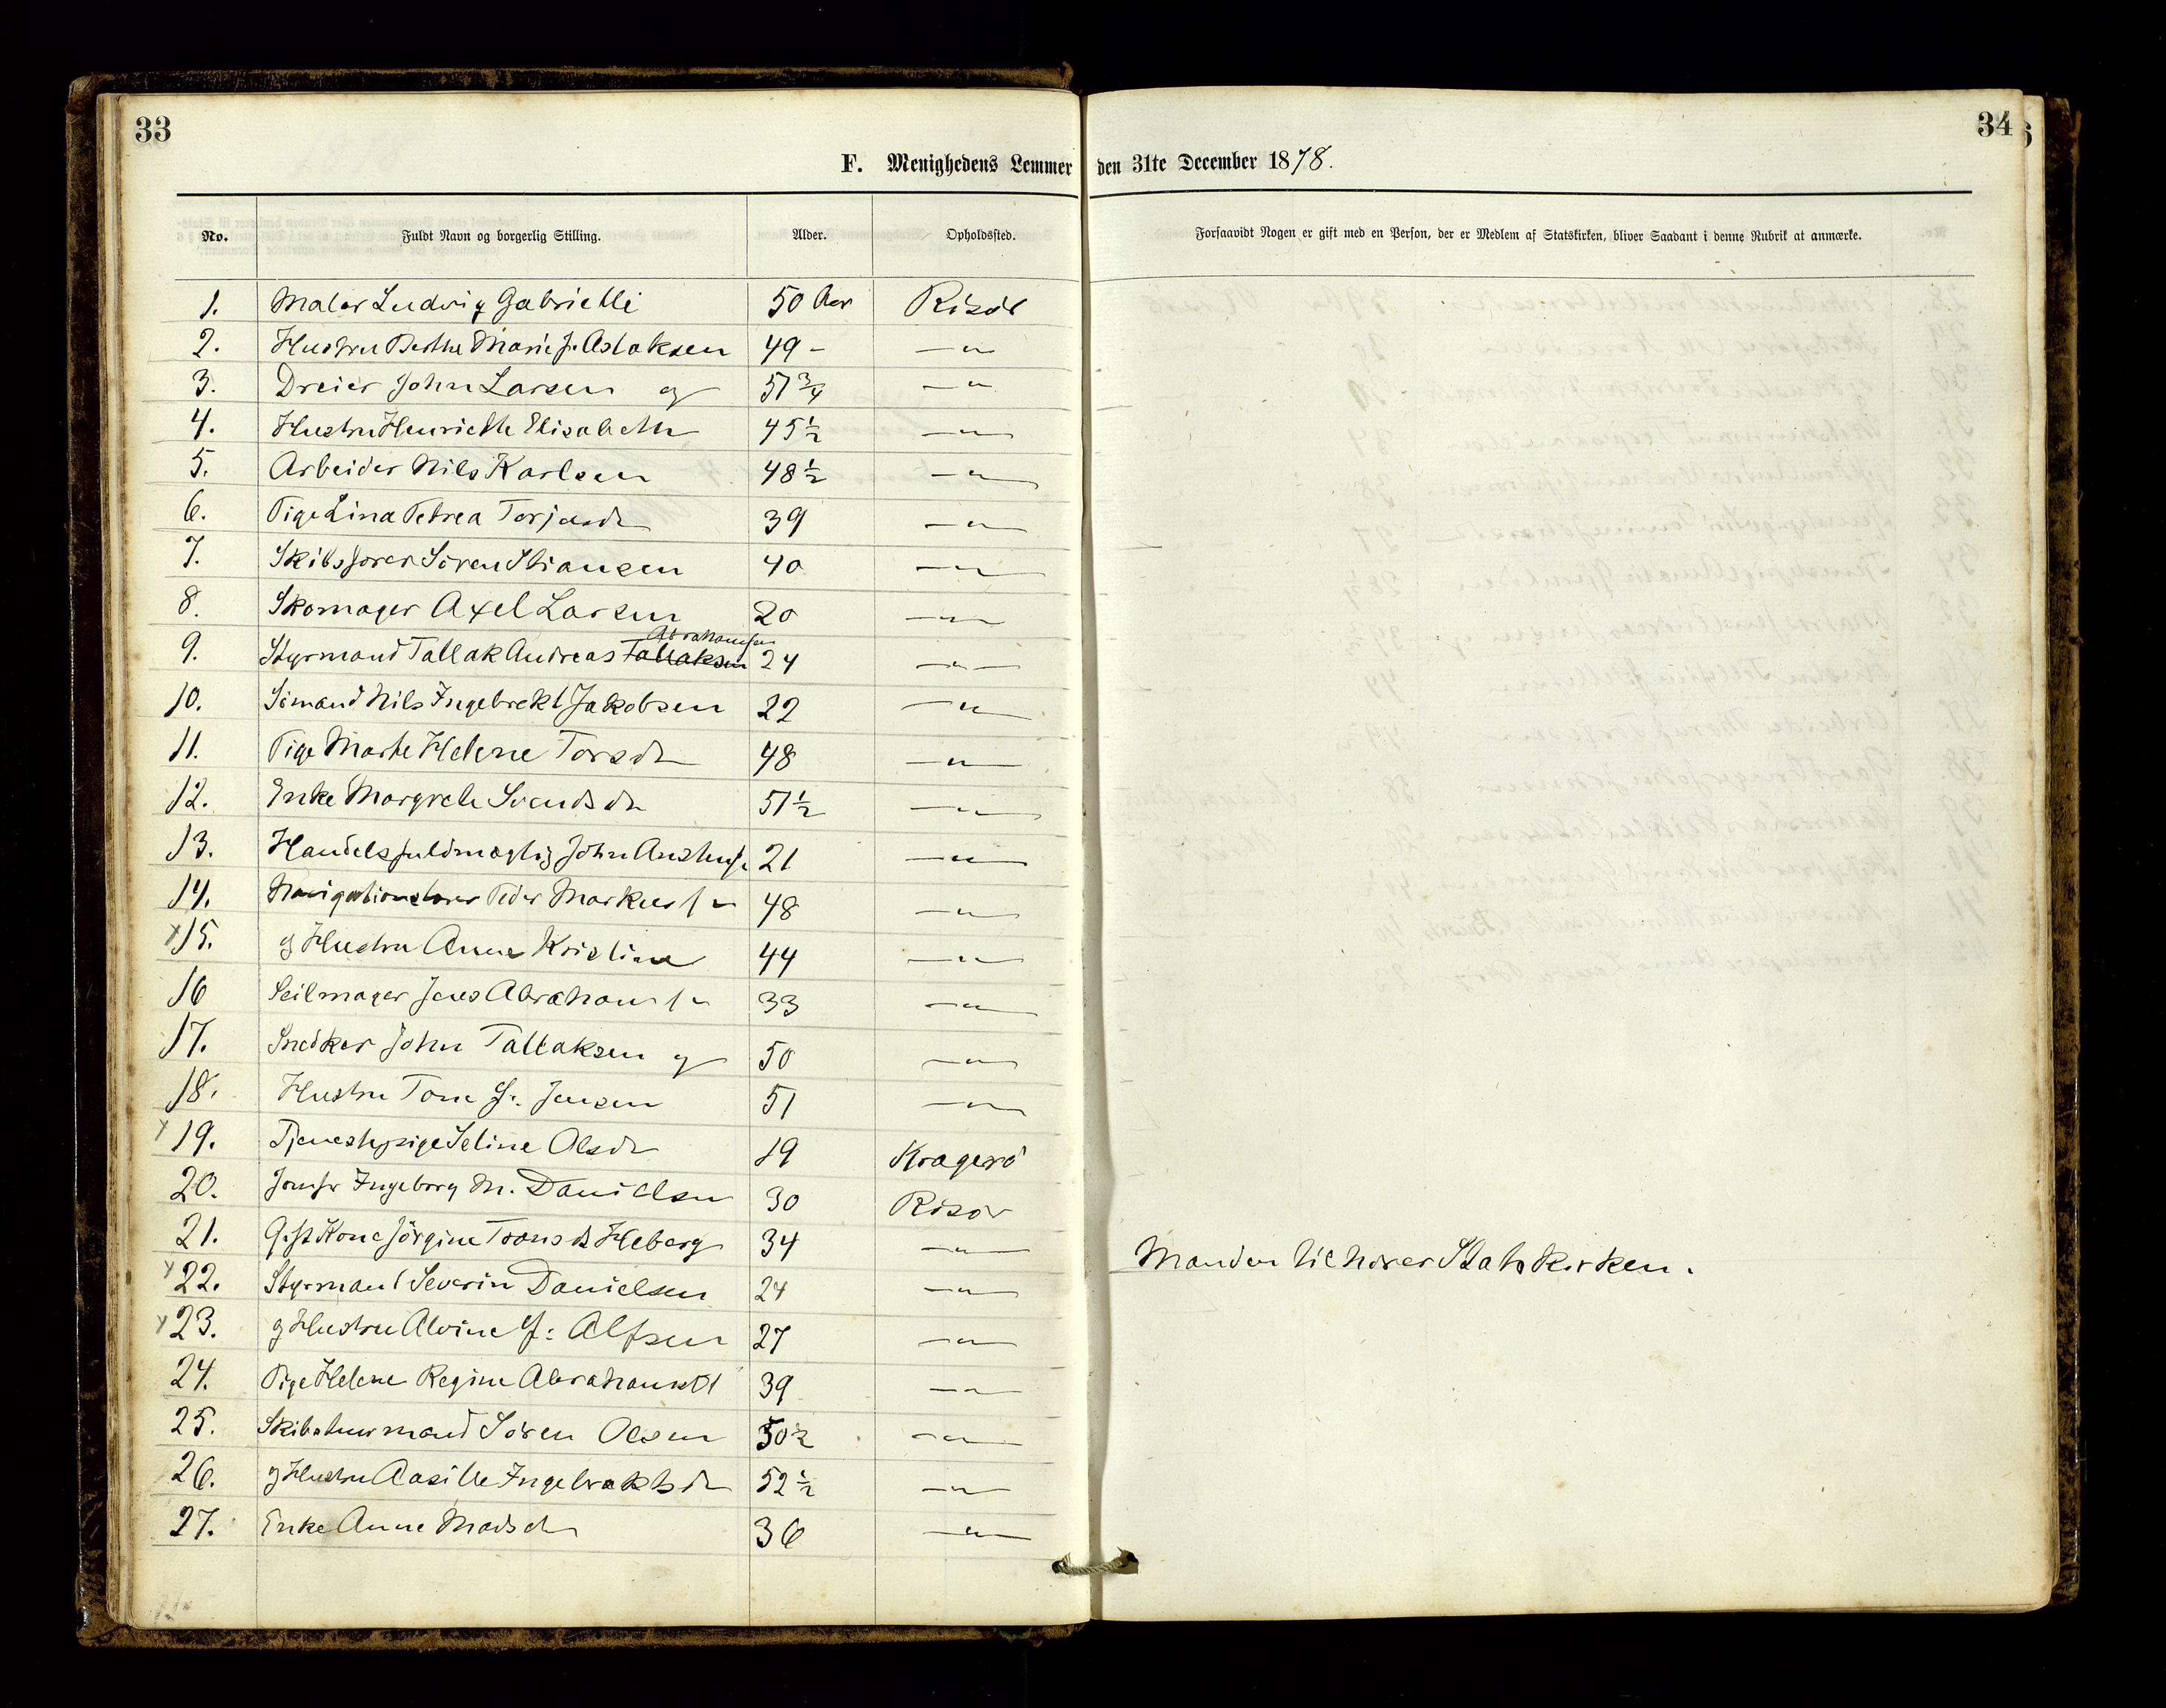 33
34
F. Menighedens Lemmer den 31te December 1878.
No. Fuldt Navn og borgerlig Stilling. Alder. Opholdssted. Forsaavidt Nogen er gift med en Person, der er Medlem af Statskirken, bliver Saadant i denne Rubrik at anmærke.
1. Maler Ludvig Gabrielli 50 Aar Risör
2. Hustru Berthe Marie f. Aslaksen 49 - — " —
3. Dreier John Larsen og 51 3/4 — " —
4. Hustru Henriette Elisabeth 45 1/2 — " —
5. Arbeider Nils Karlsen 48 1/2 — " —
6. Pige Lina Petrea Terjesdr 39 — " —
7. Skibsförer Sören Stiansen 40 — " —
8. Skomager Axel Larsen 20 — " —
Abrahamsen
9. Styrmand Tallak Andreas Tallaksen 24 — " —
10. Sömand Nils Ingebrekt Jakobsen 22 — " —
11. Pige Marte Helene Torsdr 48 — " —
12. Enke Margrete Svendsdr 51 1/2 — " —
13. Handelsfuldmægtig John Anstensen 21 — " —
14. Navigationslærer Peder Markussen 48 — " —
15. og Hustru Anne Kristine 44 — " —
16 Seilmager Jens Abrahamsen 33 — " —
17. Snedker John Tallaksen og 50 — " —
18. Hustru Tone f. Jensen 51 — " —
19. Tjenestepige Seline Olsdr 19 Kragerö
20. Jomfr Ingeborg M. Danielsen 30 Risör
21. Gift Kone Jörgine Tronsdr Heberg 34 — " — Manden tilhörer Statskirken.
22. Styrmand Severin Danielsen 24 — " —
23. og Hustru Alvine f: Alfsen 27 — " —
24. Pige Helene Regine Abrahamsdt 39 — " —
25. Skibstømmermand Sören Olsen 50 1/2 — " —
26. og Hustru Aasille Ingebraktsdr 52 1/2 — " —
27. Enke Anne Madsdr 36 — " —